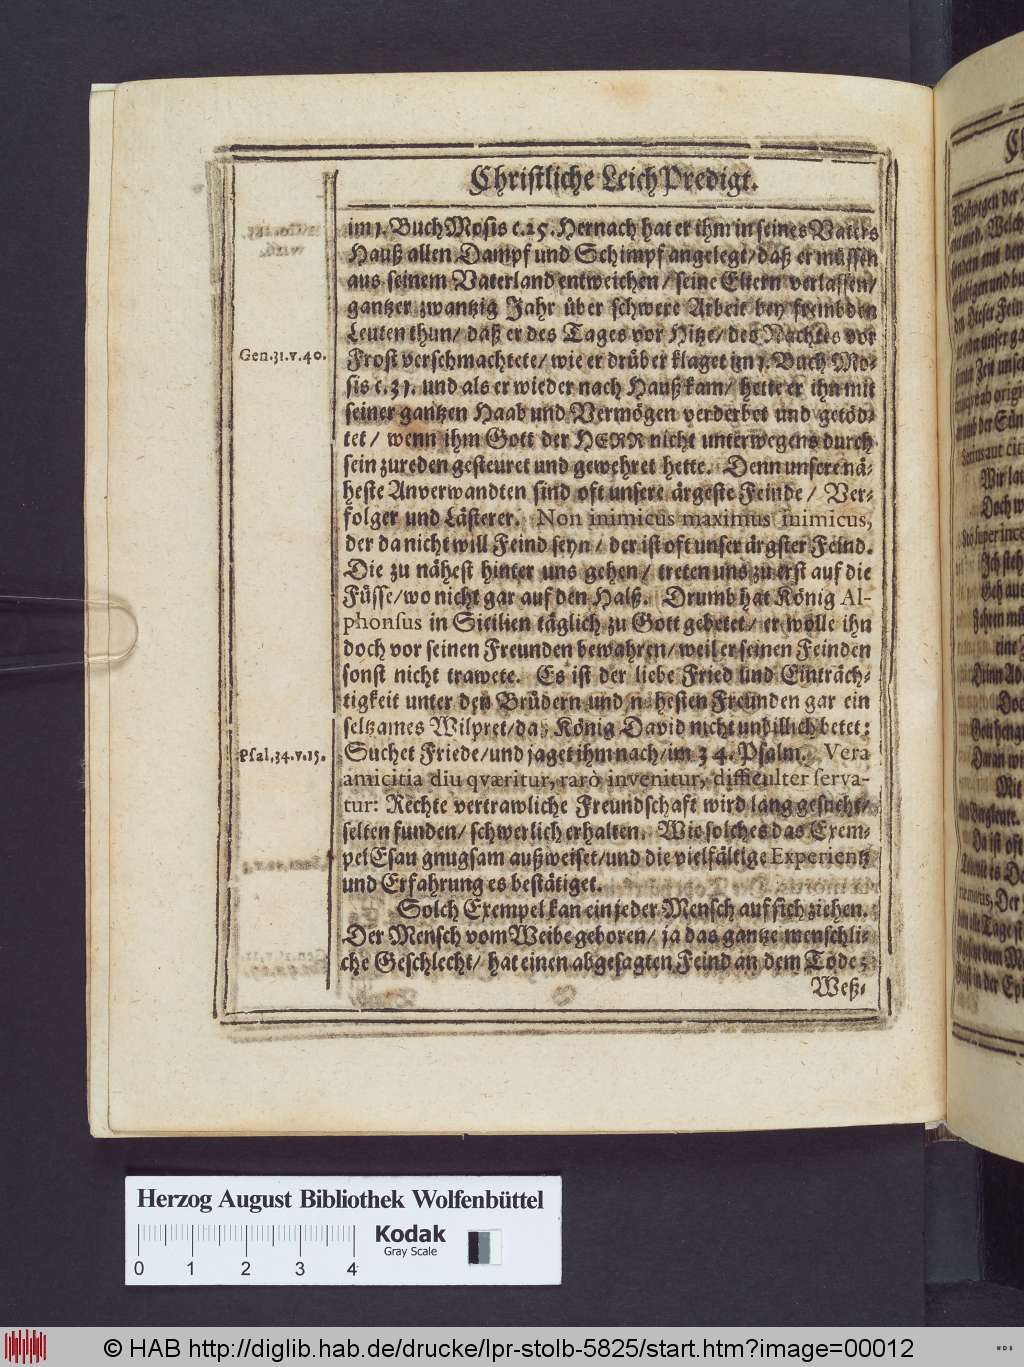 Christliche LeichPredigt.
im 1. Buch Mosis c. 25. Hernach hat er ihm in seines Vaters
Hauß allen Dampf und Schimpf angelegt/ daß er müssen
aus seinem Vaterland entweichen/ seine Eltern verlassen/
gantzer zwantzig Jahr über schwere Arbeit bey frembden
Leuten thun/ daß er des Tages vor Hitze/ des Nachtes vor
Gen. 31. v. 40.
Frost verschmachtete/ wie er drüber klaget im 1. Buch Mo-
sis c. 31. und als er wieder nach Hauß kam/ hette er ihn mit
seiner gantzen Haab und Vermögen verderbet und getöd-
tet/ wenn ihm Gott der HERR nicht unterwegens durch
sein zureden gesteuret und gewehret hette. Denn unsere nä-
heste Anverwandten sind oft unsere ärgeste Feinde/ Ver-
folger und Lästerer. Non inimicus maximus inimicus,
der da nicht will Feind seyn/ der ist oft unser ärgster Feind.
Die zu nähest hinter uns gehen/ treten uns zu erst auf die
Füsse/ wo nicht gar auf den Halß. Drumb hat König Al-
phonsus in Sicilien täglich zu Gott gebetet/ er wolle ihn
doch vor seinen Freunden bewahren/ weil er seinen Feinden
sonst nicht trawete. Es ist der liebe Fried und Einträch-
tigkeit unter den Brüdern und nehesten Freunden gar ein
seltzames Wilpret/ das König David nicht unbillich betet:
Psal. 34. v. 15.
Suchet Friede/ und jaget ihm nach/ im 34. Psalm. Vera
amicitia diu qværitur, rarò invenitur, difficulter serva-
tur: Rechte vertrawliche Freundschaft wird lang gesucht/
selten funden/ schwerlich erhalten. Wie solches das Exem-
pel Esau gnugsam außweiset/ und die vielfältige Experientz
und Erfahrung es bestätiget.
Solch Exempel kan ein jeder Mensch auf sich ziehen.
Der Mensch vom Weibe geboren/ ja das gantze menschli-
che Geschlecht/ hat einen abgesagten Feind an dem Tode;
Weß-
Herzog August Bibliothek Wolfenbüttel
Kodak
Gray Scale
0 1 2 3 4
© HAB http://diglib.hab.de/drucke/lpr-stolb-5825/start.htm?image=00012